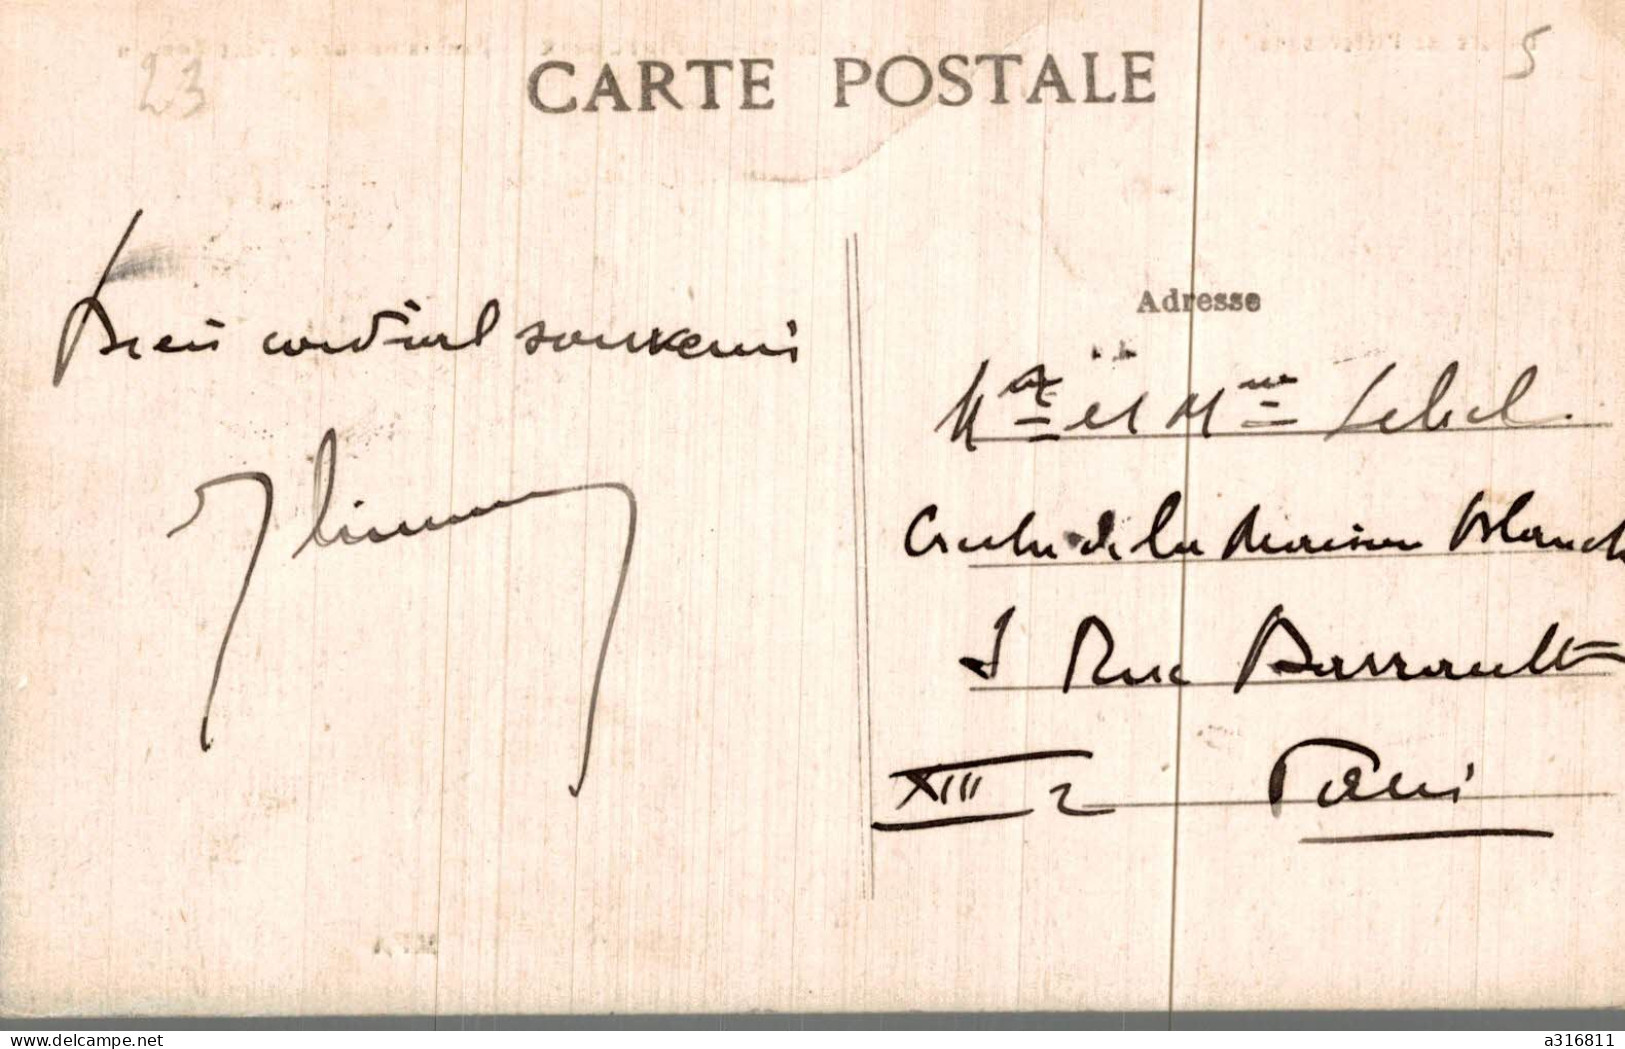 23
5
CARTE POSTALE
Bien cordial souvenir
Adresse
Mr et Mme Lebel.
Creche de la Maison Blanch
Rue Barrault
XIII e Paris
delcampe.net
a316811